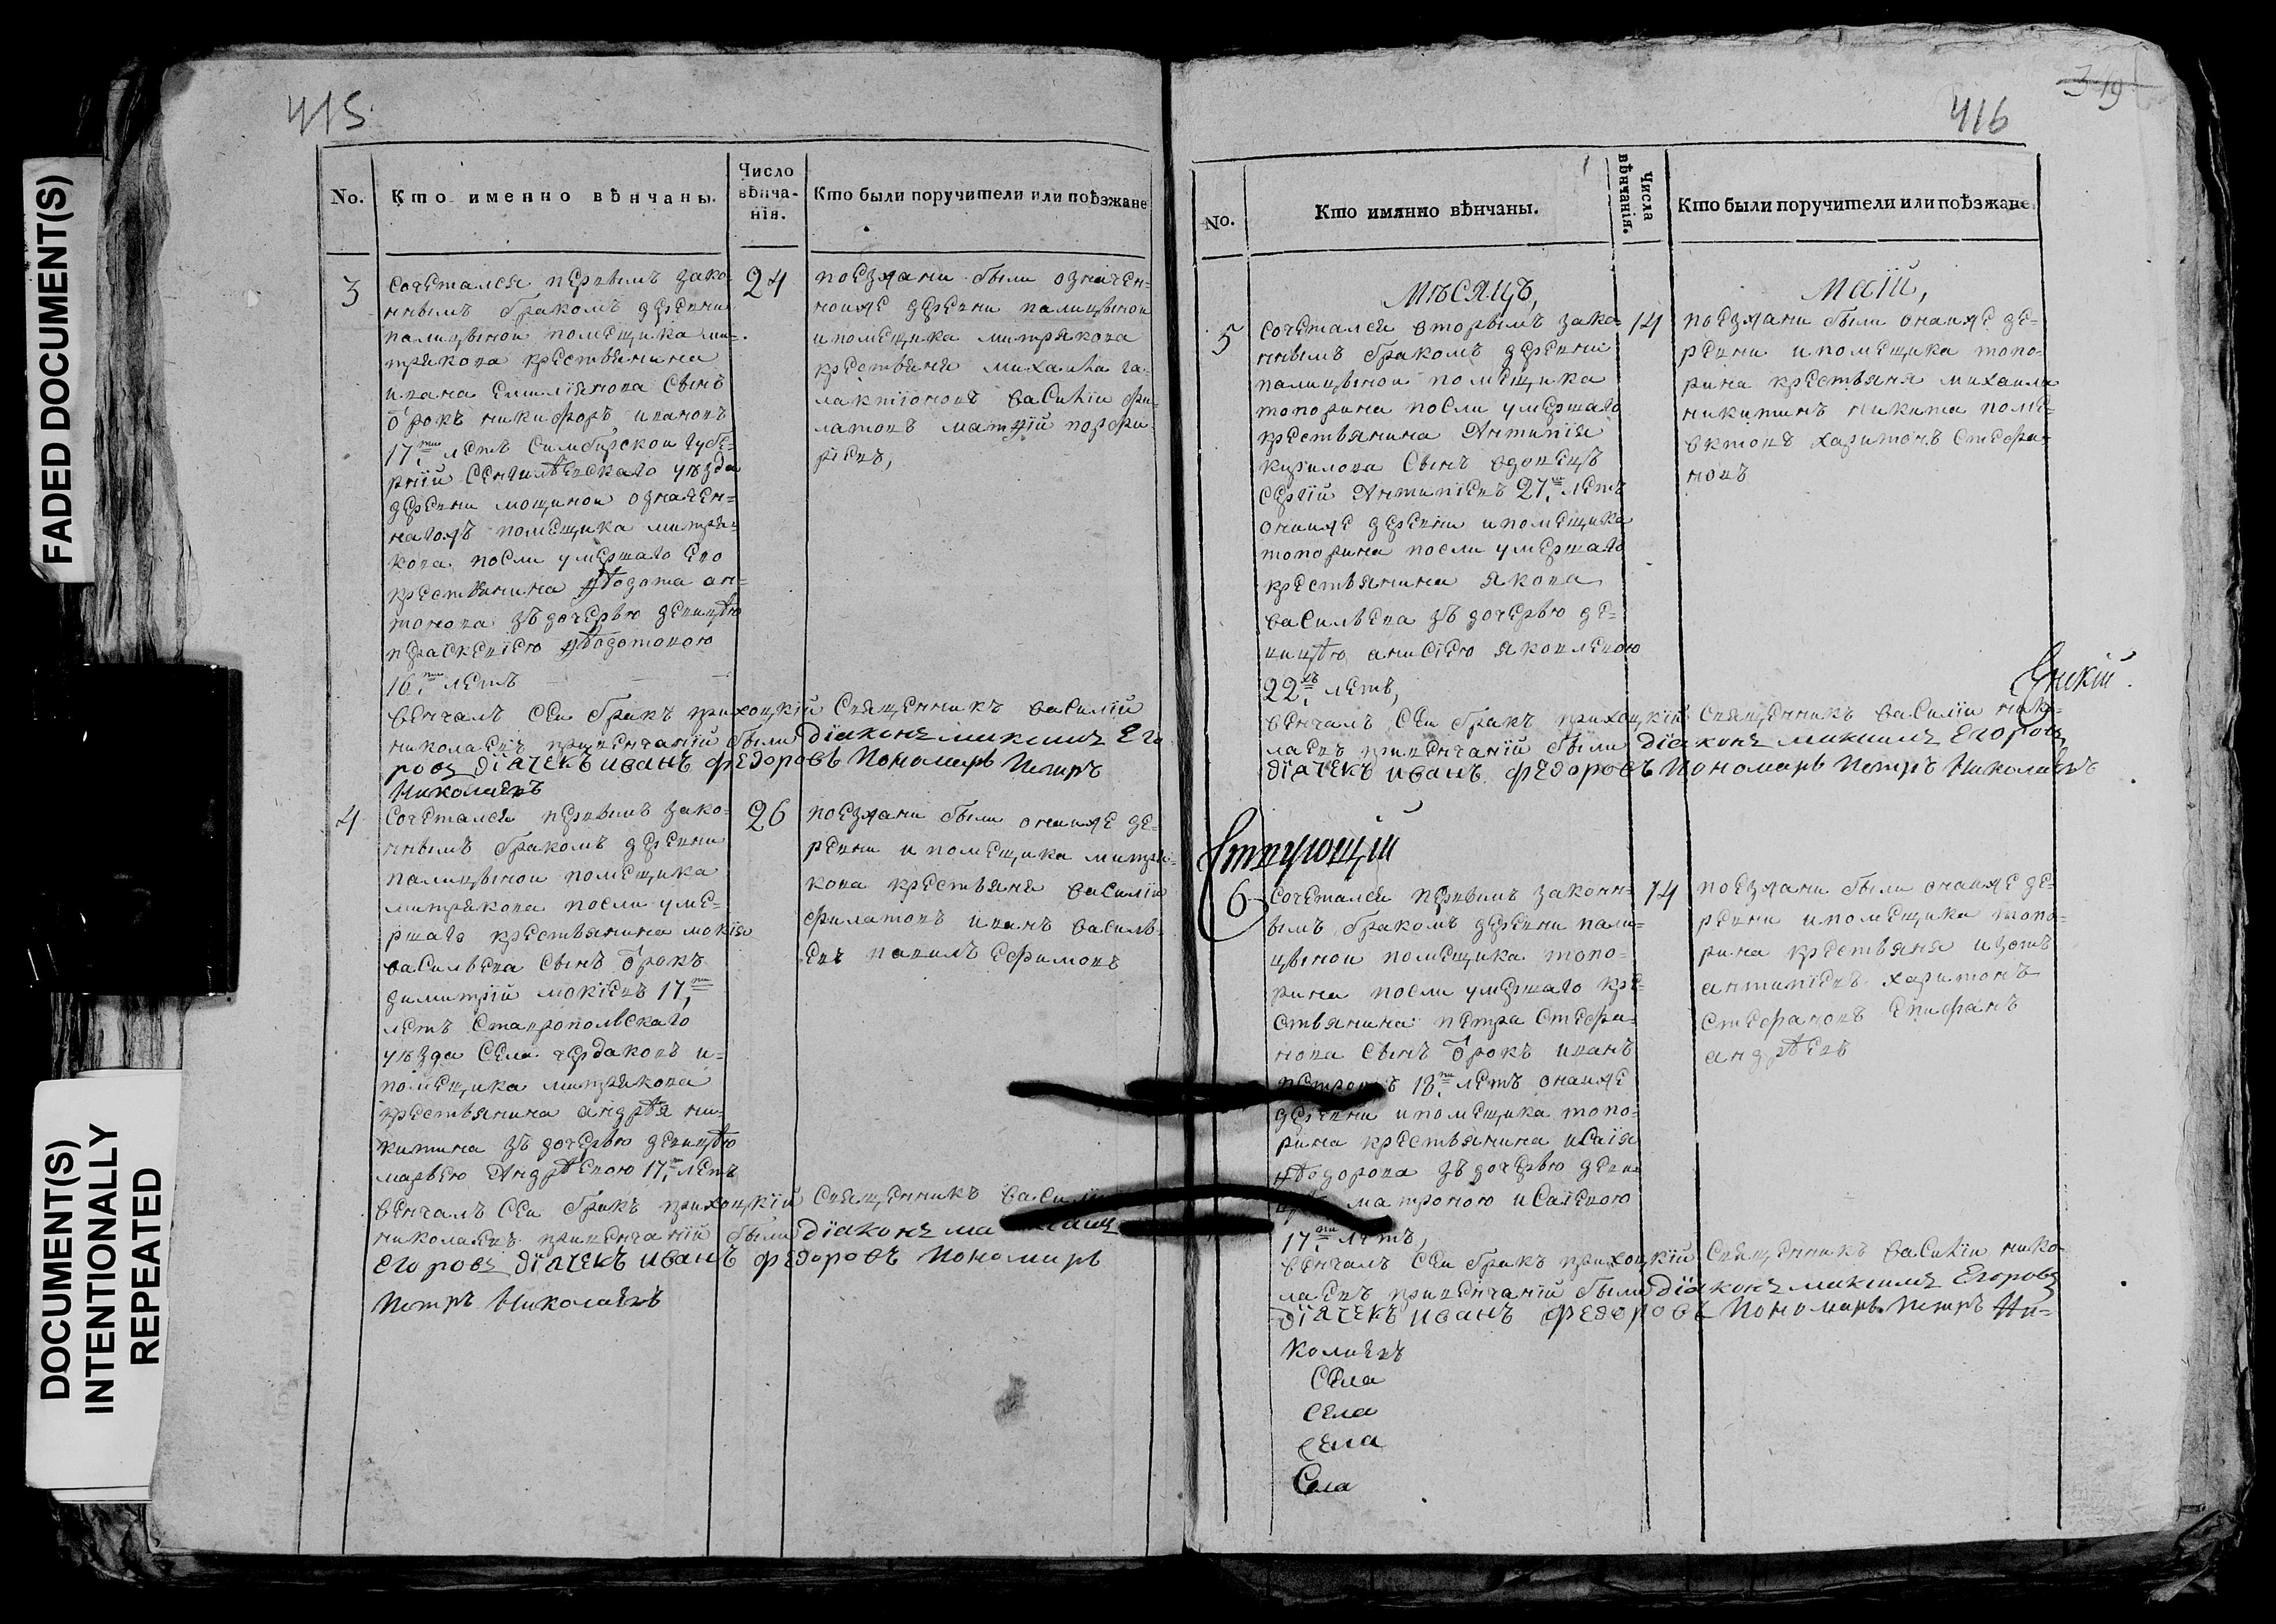 FADED DOCUMENT(S)
DOCUMENT(S)
INTENTIONALLY
REPEATED
415
No.
Кто именно вѣнчаны.
Число
вѣнча-
нія.
Кто были поручители или поѣзжане
3
сочетался первымъ зако-
ннымъ бракомъ деревни
палицыной помещика ми-
трякова крестьянина
ивана емилїянова сынъ
отрокъ никифоръ ивановъ
17.ти летъ симбирской губе-
рнїи сенгилѣевскаго уѣзда
деревни мощиной означен-
нагожъ помещика митря-
кова посли умершаго ево
крестьянина ѳѣодота ан-
тонова зъ дочерью девицѣю
праскевїею ѳѣодотовою
16.ти летъ
24
поезжани были означен-
ноиже деревни палицыной
и помещика митрякова
крестьяня михаила га-
лактїоновъ василїи фи-
латовъ матѳїй порфи-
рьевъ,
венчалъ сеи бракъ приходцкїй священникъ василїй
николаевъ привенчанїй были дїаконъ максимъ Его
ровъ дїачекъ иванъ федоровъ пономарь петръ
николаевъ
4
сочетался первымъ зако-
ннымъ бракомъ деревни
палицыной помещика
митрякова посли уме-
ршаго крестьянина мокїя
васильева сынъ отрокъ
димитрїй мокїевъ 17.ти
летъ ставропольскаго
уѣзда села чердаковъ и-
помещика митрякова
крестьянина андрѣя ни-
китина зъ дочерью девицѣю
марьею андрѣевою 17.ти летъ
26
поезжани были онаиже де-
ревни и помещика митря-
кова крестьяня василїи
филатовъ иванъ василь-
евъ павилъ ефимовъ
венчалъ сеи бракъ приходцкїй священникъ василїи
николаевъ привенчанїй были дїаконъ максимъ
егоровъ дїачекъ иванъ федоровъ пономарь
петръ николаевъ
319
416
No.
Кто имянно вѣнчаны.
Числа
вѣнчанія.
Кто были поручители или поѣзжане
мѣсяцъ, маїй,
5
сочетался вторымъ зако-
ннымъ бракомъ деревни
палицыной помещика
топорина посли умершаго
крестьянина антипїя
кирилова сынъ вдовецъ
сергїй антипїевъ 27.ми летъ
онаиже деревни и помещика
топорина посли умершаго
крестьянина якова
васильева зъ дочерью де-
вицѣю анисїею яковлевою
22.хъ летъ,
14
поезжани были онаиже де-
ревни и помещика топо-
рина крестьяня михаила
никитинъ никита поле-
вктовъ харитонъ стефа-
новъ
венчалъ сеи бракъ приходцкїй священникъ василїи нико-
лаевъ привенчанїй были дїаконъ максимъ Егоровъ
дїачекъ иванъ федоровъ пономарь петръ николаевъ
6
сочетался первымъ законн-
ымъ бракомъ деревни пали-
цыной помещика топо-
рина посли умершаго кре-
стьянина петра стефа-
нова сынъ отрокъ иванъ
петровъ 18.ти летъ онаиже
деревни и помещика топо-
рина крестьянина исаїя
ѳѣодорова зъ дочерью деви-
цѣю матроною исаїевою
17.ти летъ,
14
поезжани были онаиже де-
ревни и помещика топо-
рина крестьяня изотъ
антипїевъ харитонъ
стефановъ епифанъ
андрѣевъ
венчалъ сеи бракъ приходцкїй священникъ василїи нико-
лаевъ привенчанїй были дїаконъ максимъ Егоровъ
дїачекъ иванъ федоровъ пономарь петръ ни-
колаевъ
села
села
села
села